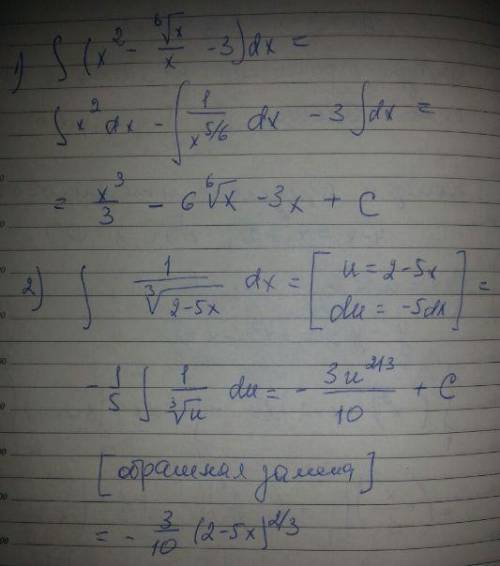 1) ∫ (x² - ⁶√x/x - 3) dx =
∫ x² dx - ∫ 1/x^(5/6) dx - 3 ∫ dx =
= x³/3 - 6 ⁶√x - 3x + C
2) ∫ 1/∛(2-5x) dx = [u = 2-5x
du = -5dx] =
-1/5 ∫ 1/∛u du = - 3u^(2/3)/10 + C
[обрашная замена]
= - 3/10 (2-5x)^(2/3)